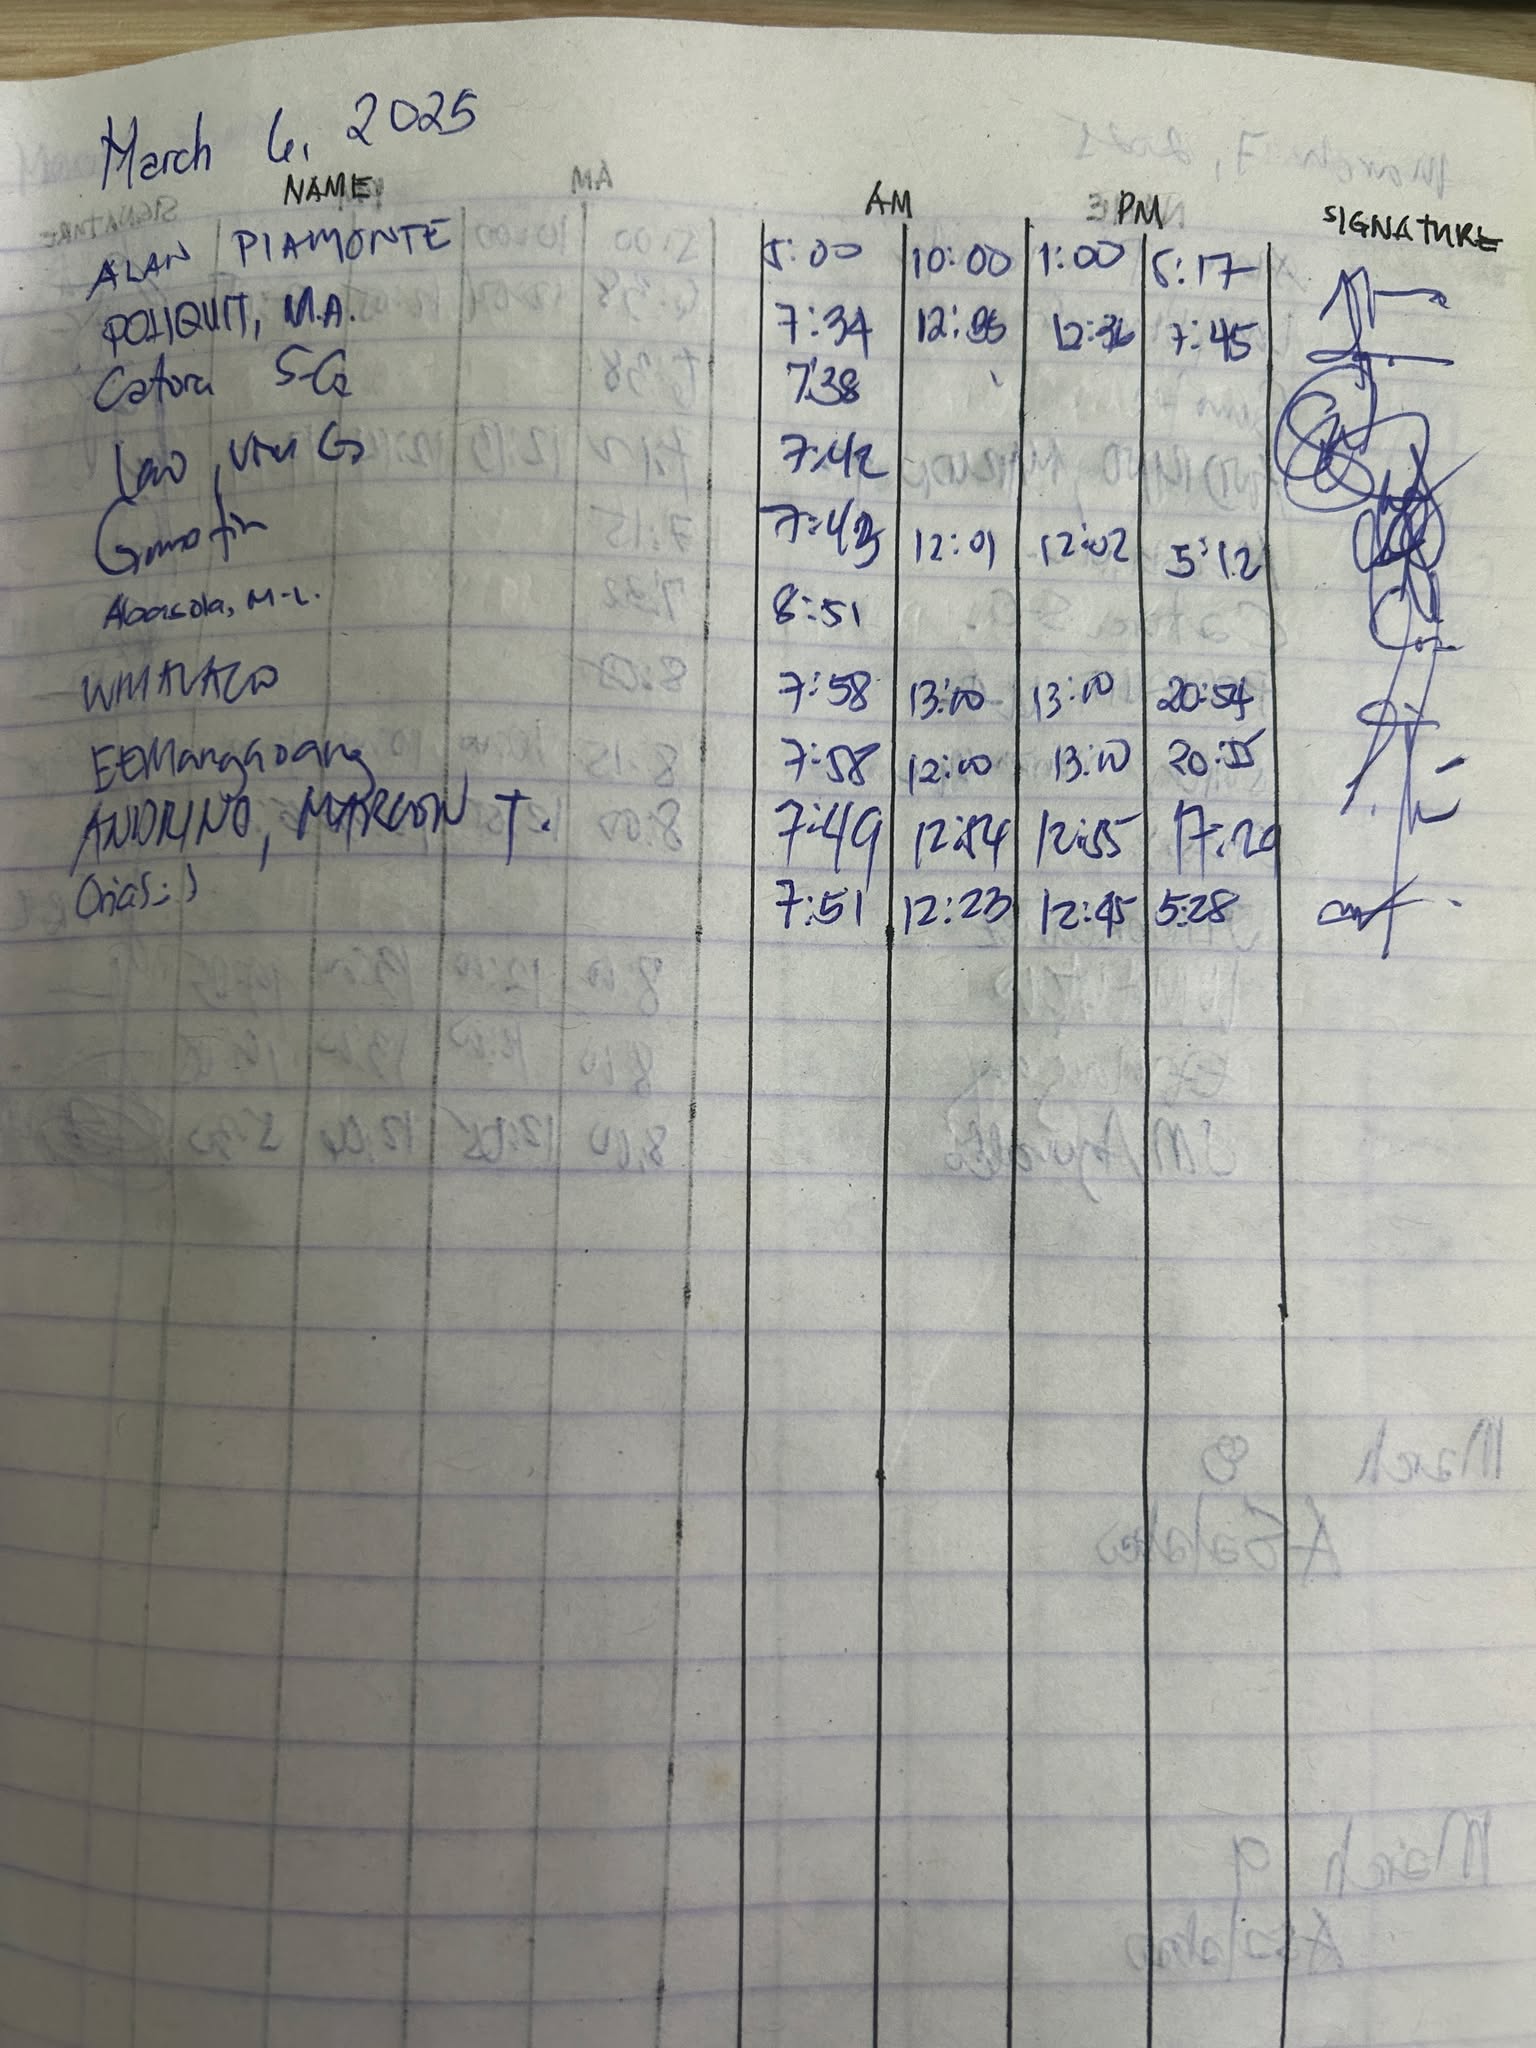 March 6, 2025
NAME AM PM SIGNATURE
ALAN PIAMONTE 5:00 10:00 1:00 5:17
POLIQUIT, M.A. 7:34 12:35 12:36 7:45
Catora S-G 7:38
Lao, 7:42
7:43 12:01 12:02 5:12
Abasola, M-L. 8:51
7:58 13:00 13:00 20:54
EEManggaoang 7:58 12:00 13:00 20:55
ANDRINO, MARLON T. 7:49 12:54 12:55 17:29
Orias 7:51 12:23 12:45 5:28